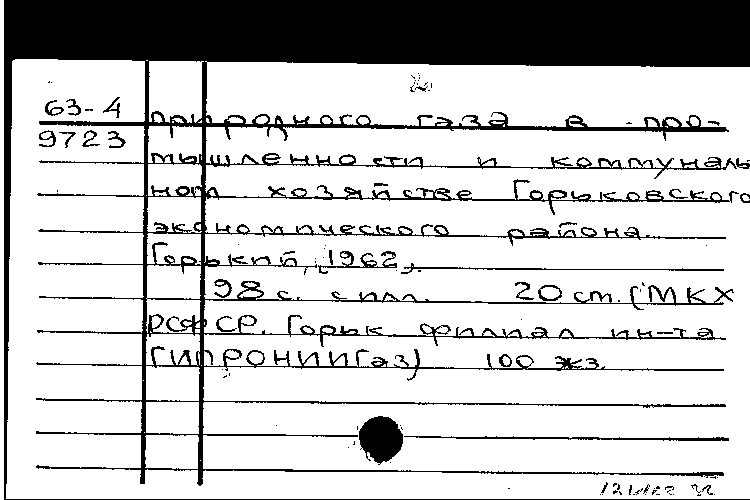 2
63-4
природного газа в про-
9723
мышленности и коммуналь
ном хозяйстве Горьковского
экономического района.
Горький, 1962,
98 с. с илл. 20 см. (МКХ
РСФСР. Горьк. филиал ин-та
ГИПРОНИИГаз) 100 экз.